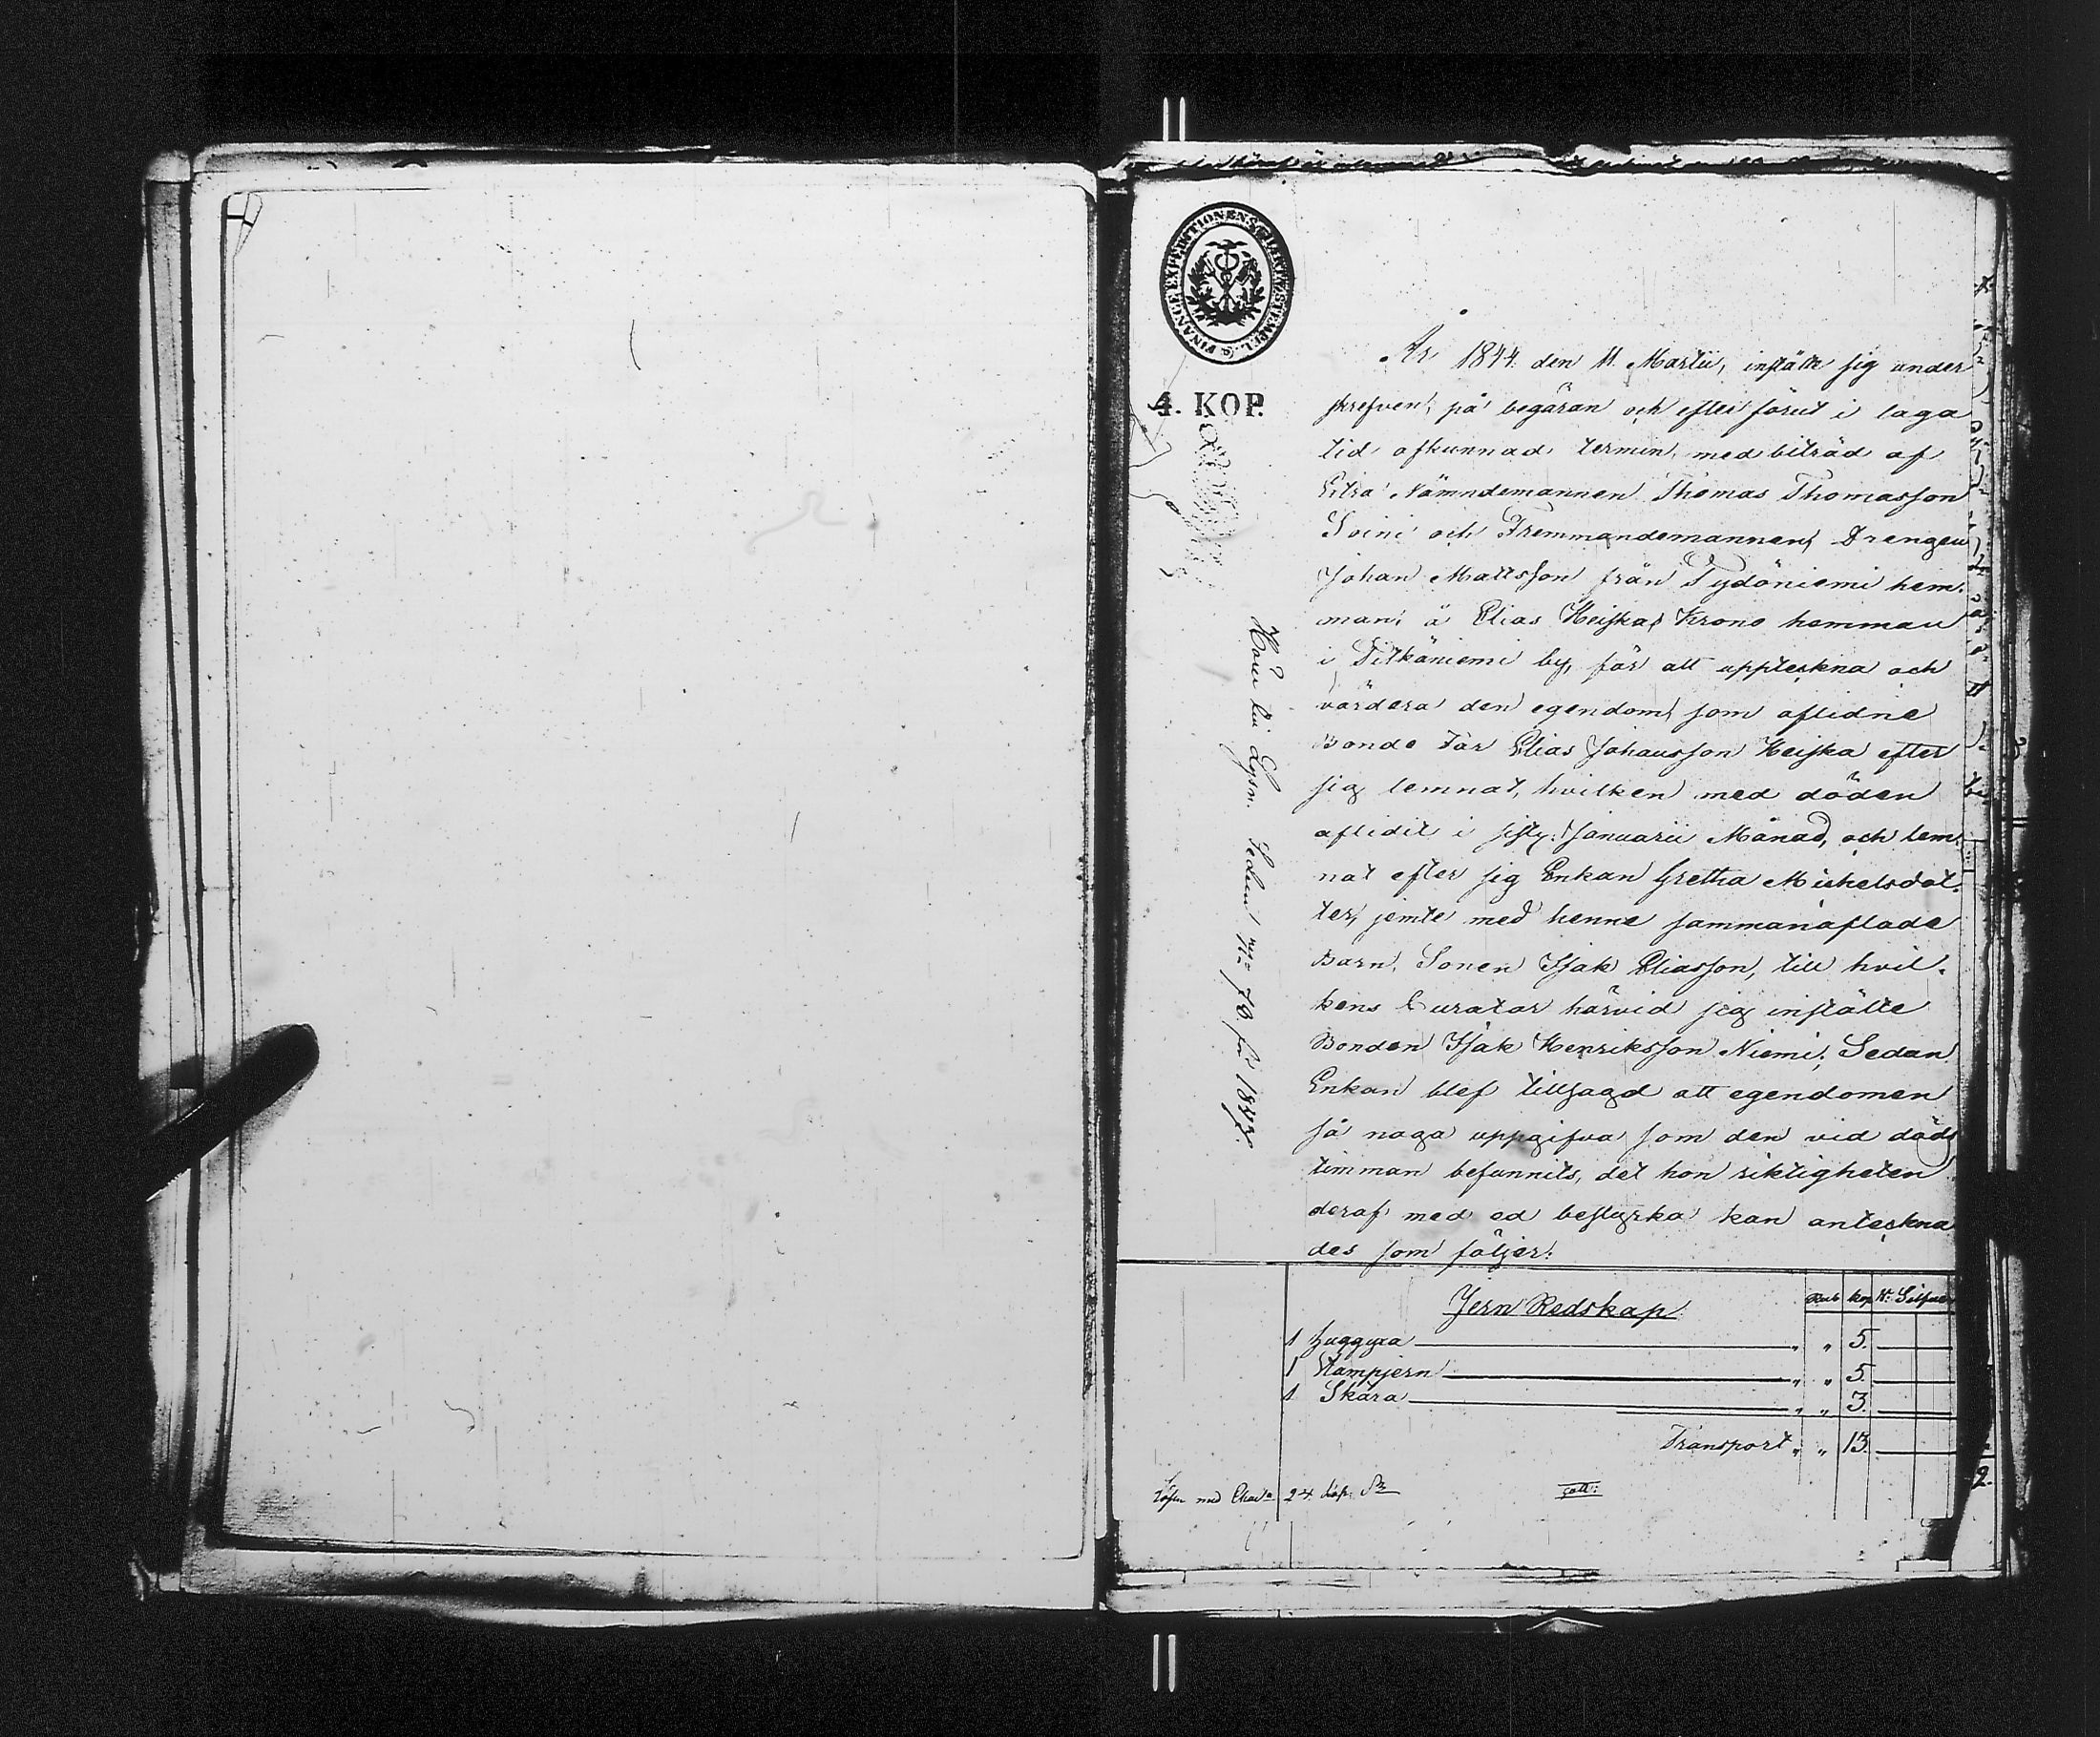 FINANCE EXPEDITIONENS
4. KOP.
År 1844. den 11. Martii, instälte sig under
skrefven, på begäran och efter förut i laga
tid afkunnad termin, med biträd af
Extra Nämndemannen Thomas Thomasson
Soini och Fremmandemannen, Drengen
Johan Mattsson från Pydöniemi hem-
man, å Elias Heiskas Krono hemman
i Pitkäniemi by, för att uppteckna och
värdera den egendom, som aflidne
Bonde Far Elias Johansson Heiska efter
sig lemnat, hvilken med döden
aflidit i sistl. Januarii Månad, och lem-
nat efter sig Enkan Gretha Michelsdot-
ter, jemte med henne sammanaflade
Barn, Sonen Isak Eliasson, till hvil-
kens Curator härvid sig instälte
Bonden Isak Henriksson Niemi; Sedan
Enkan blef tillsagd att egendomen
så noga uppgifva som den vid döds
timman befunnits, det hon riktigheten
deraf med ed bestyrka kan anteckna
des som följer:
Jern Redskap. Rub. kop. Silfver
1 huggyxa " " 5.
1 Stampjern " " 5.
1 Skära " " 3.
Transport " " 13.
Lösen med Charta 24. kop. Sr
№ 78. för 1847.